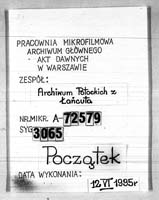 PRACOWNIA MIKROFILMOWA
ARCHIWUM GŁÓWNEGO
AKT DAWNYCH
W WARSZAWIE
ZESPÓŁ:
Archiwum Potockich z
Łańcuta
NR.MIKR. A-72579
SYG. 3065
Początek
DATA WYKONANIA:
12 VI 1995r